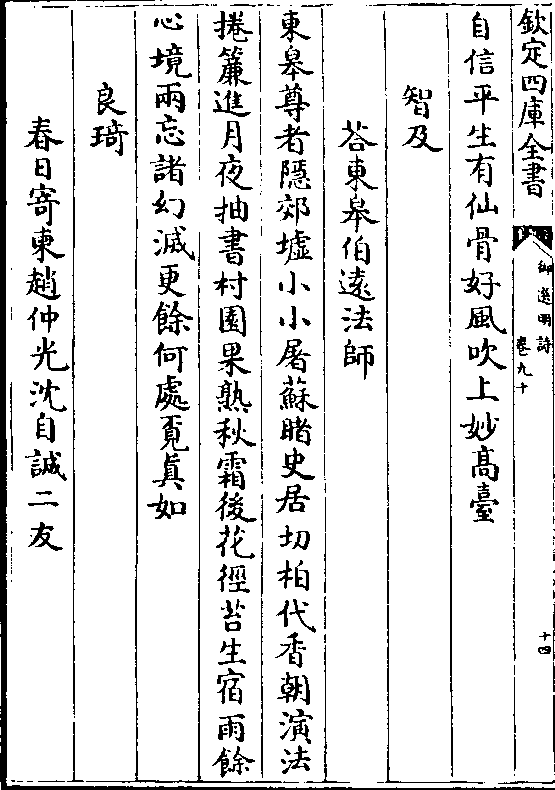 欽定四庫全書
御選明詩
卷九十
十四
自信平生有仙骨好風吹上妙高臺
智及
荅東皋伯遠法師
東皋尊者隱郊墟小小屠蘇睹史居切柏代香朝演法
捲簾進月夜抽書村園果熟秋霜後花徑苔生宿雨餘
心境兩忘諸幻滅更餘何處覓眞如
良琦
春日寄東趙仲光沈自誠二友